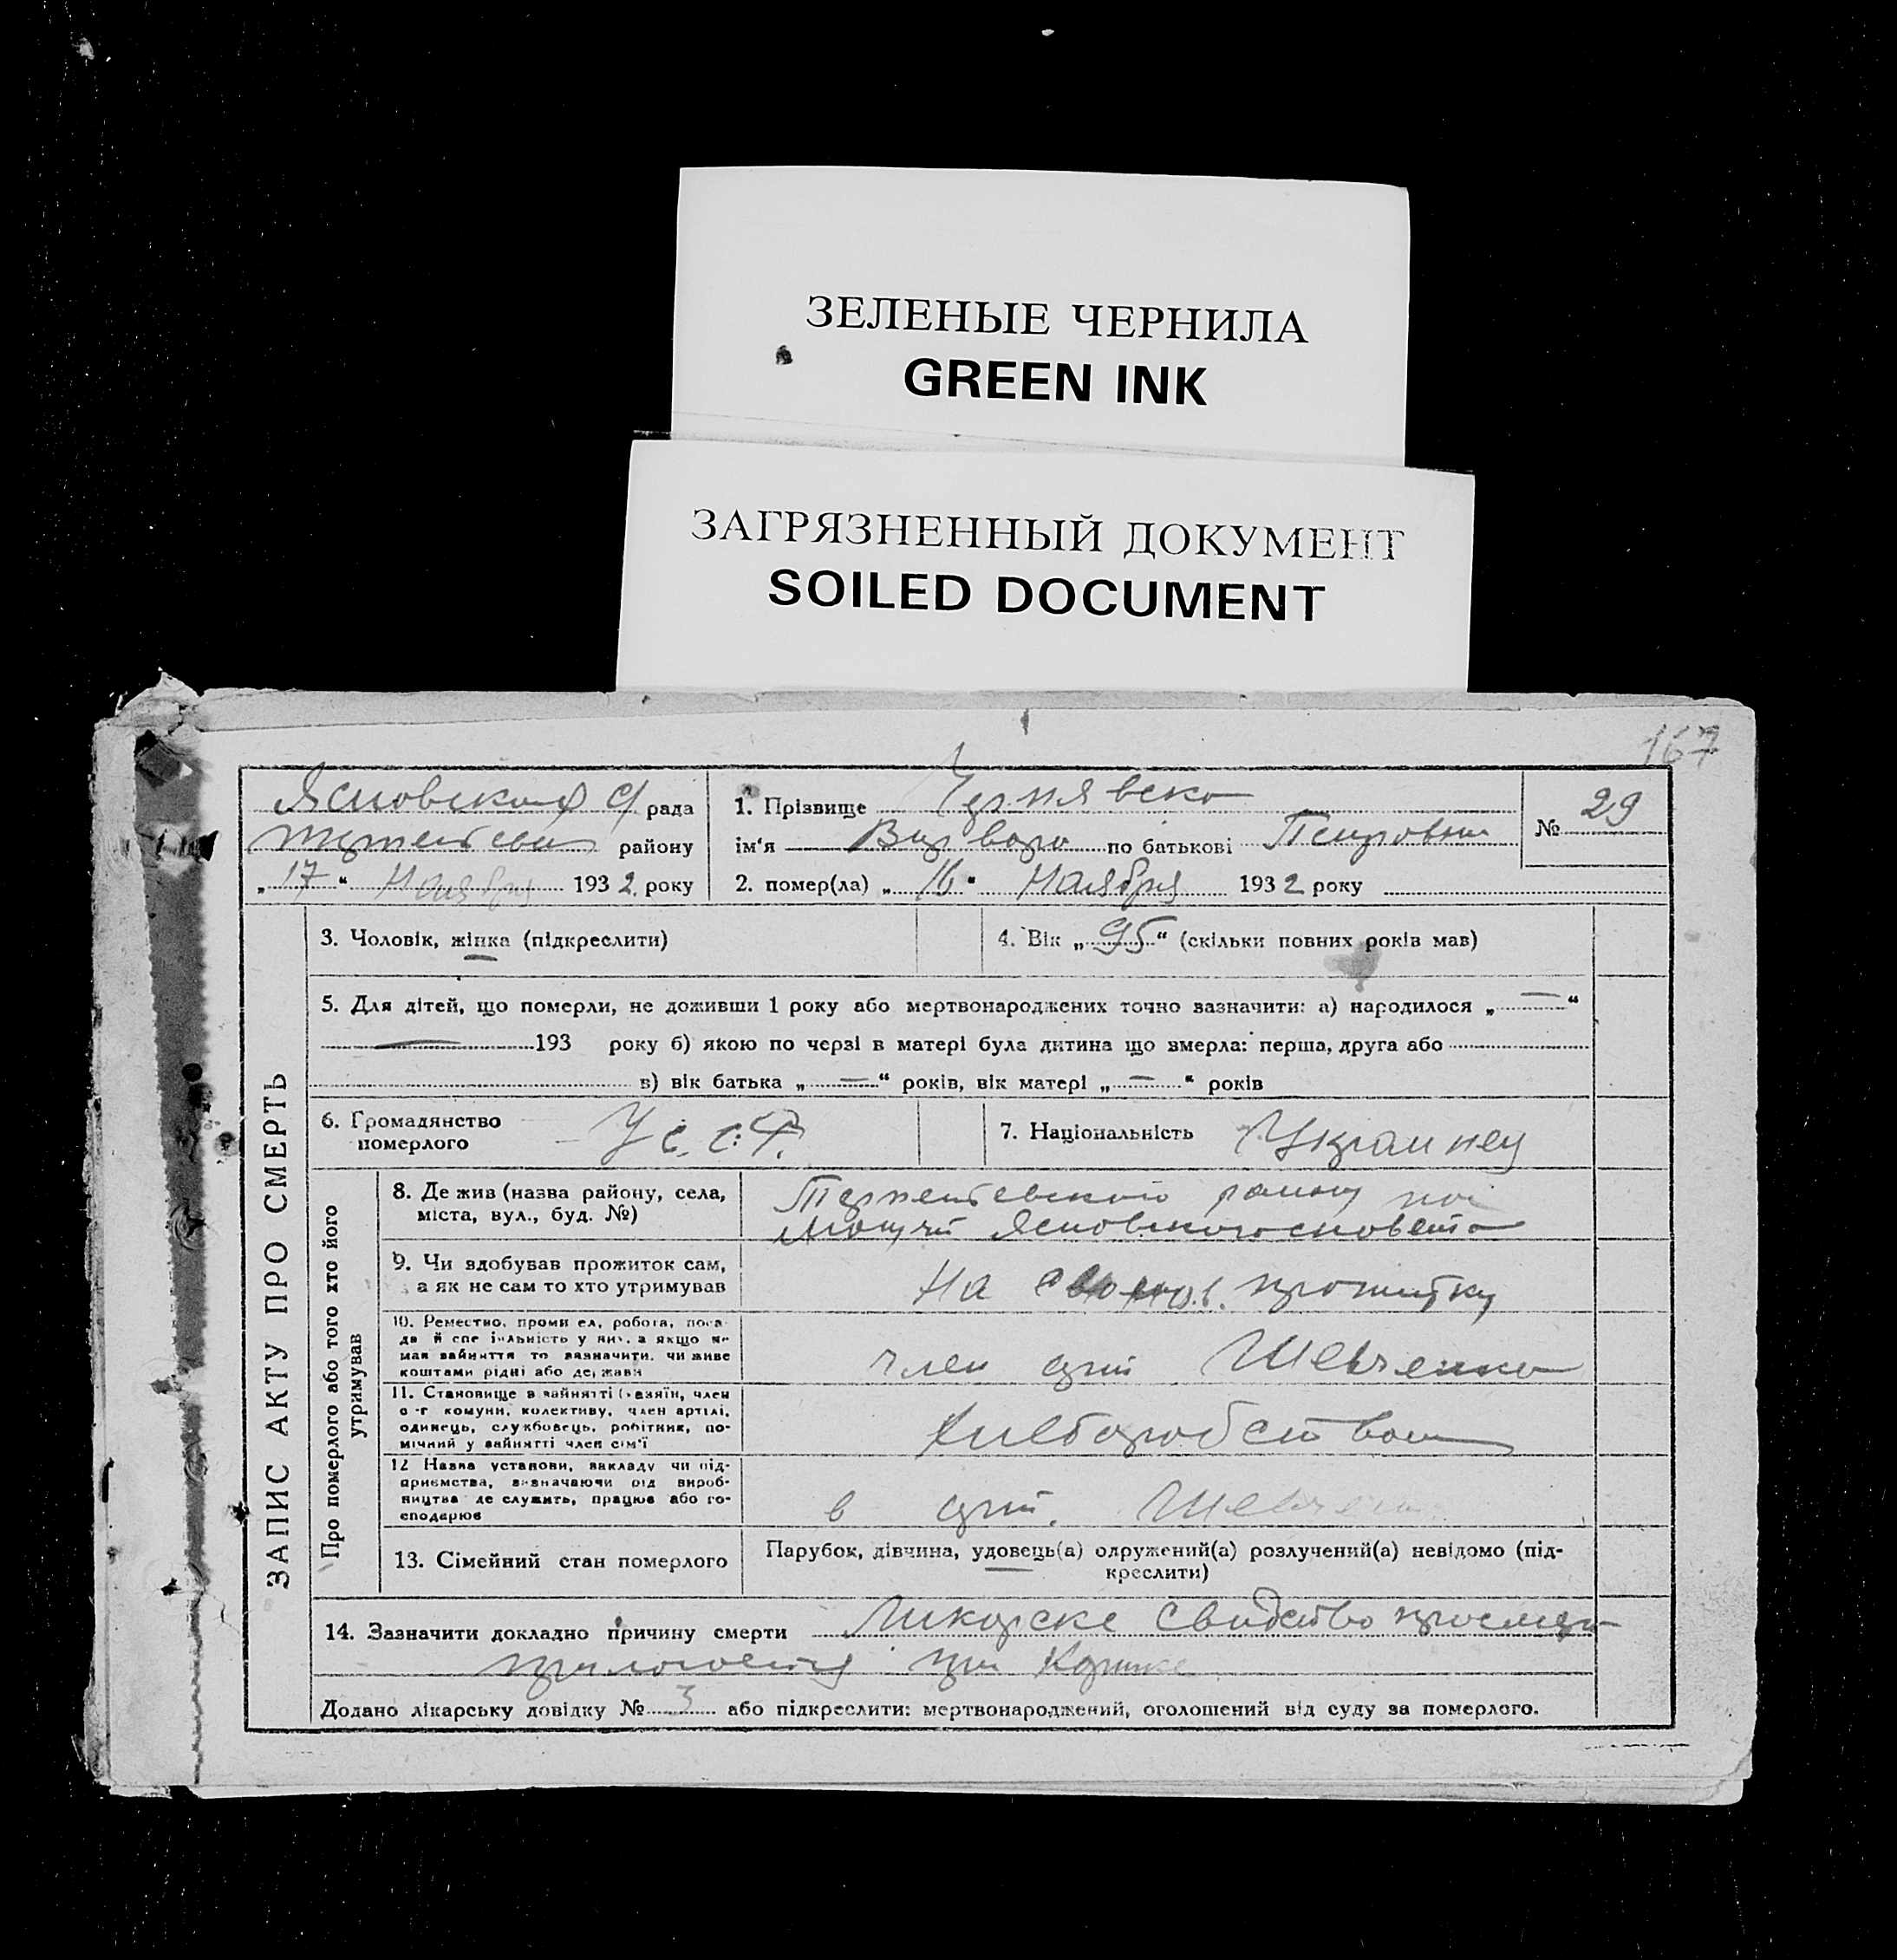 ЗЕЛЕНЫЕ ЧЕРНИЛА
GREEN INK
ЗАГРЯЗНЕННЫЙ ДОКУМЕНТ
SOILED DOCUMENT
167
ЗАПИС АКТУ ПРО СМЕРТЬ
рада
району
„17“ Ноября 1932 року
1. Прізвище Чернявско
ім'я Варвара по батькові Петровна
№ 29
2. помер(ла) „16“ Ноября 1932 року
3. Чоловік, жінка (підкреслити)
4. Вік „95“ (скільки повних років мав)
5. Для дітей, що померли, не доживши 1 року або мертвонароджених точно вазначити: а) народилося „—“
— 193 року б) якою по черзі в матері була дитина що вмерла: перша, друга або
в) вік батька „—“ років, вік матері „—“ років
6. Громадянство
померлого
У.С.С.Р.
7. Національність Украинец
Про померлого або того хто його
утримував
8. Де жив (назва району, села,
міста, вул., буд. №)
району
9. Чи вдобував прожиток сам,
а як не сам то хто утримував
На прожитку
10. Ремество, промисел, робота, поса-
да й спеціяльність у них, а якщо не
мав зайняття то вазначити, чи живе
коштами рідні або держави
член арт Шевченко
11. Становище в зайнятті (хазяїн, член
с-г комуни, колективу, член артілі,
одинець, службовець, робітник, по-
мічний у зайнятті член сім'ї
Хлеборобством
12 Назва установи, вакладу чи під-
приємства, визначаючи рід вироб-
ництва де служить, працює або го-
сподарює
в арт. Шевченко
13. Сімейний стан померлого
Парубок, дівчина, удовець(а) одружений(а) розлучений(а) невідомо (під-
креслити)
14. Зазначити докладно причину смерти Ликарске свидетство
при
Додано лікарську довідку № 3 або підкреслити: мертвонароджений, оголошений від суду за померлого.